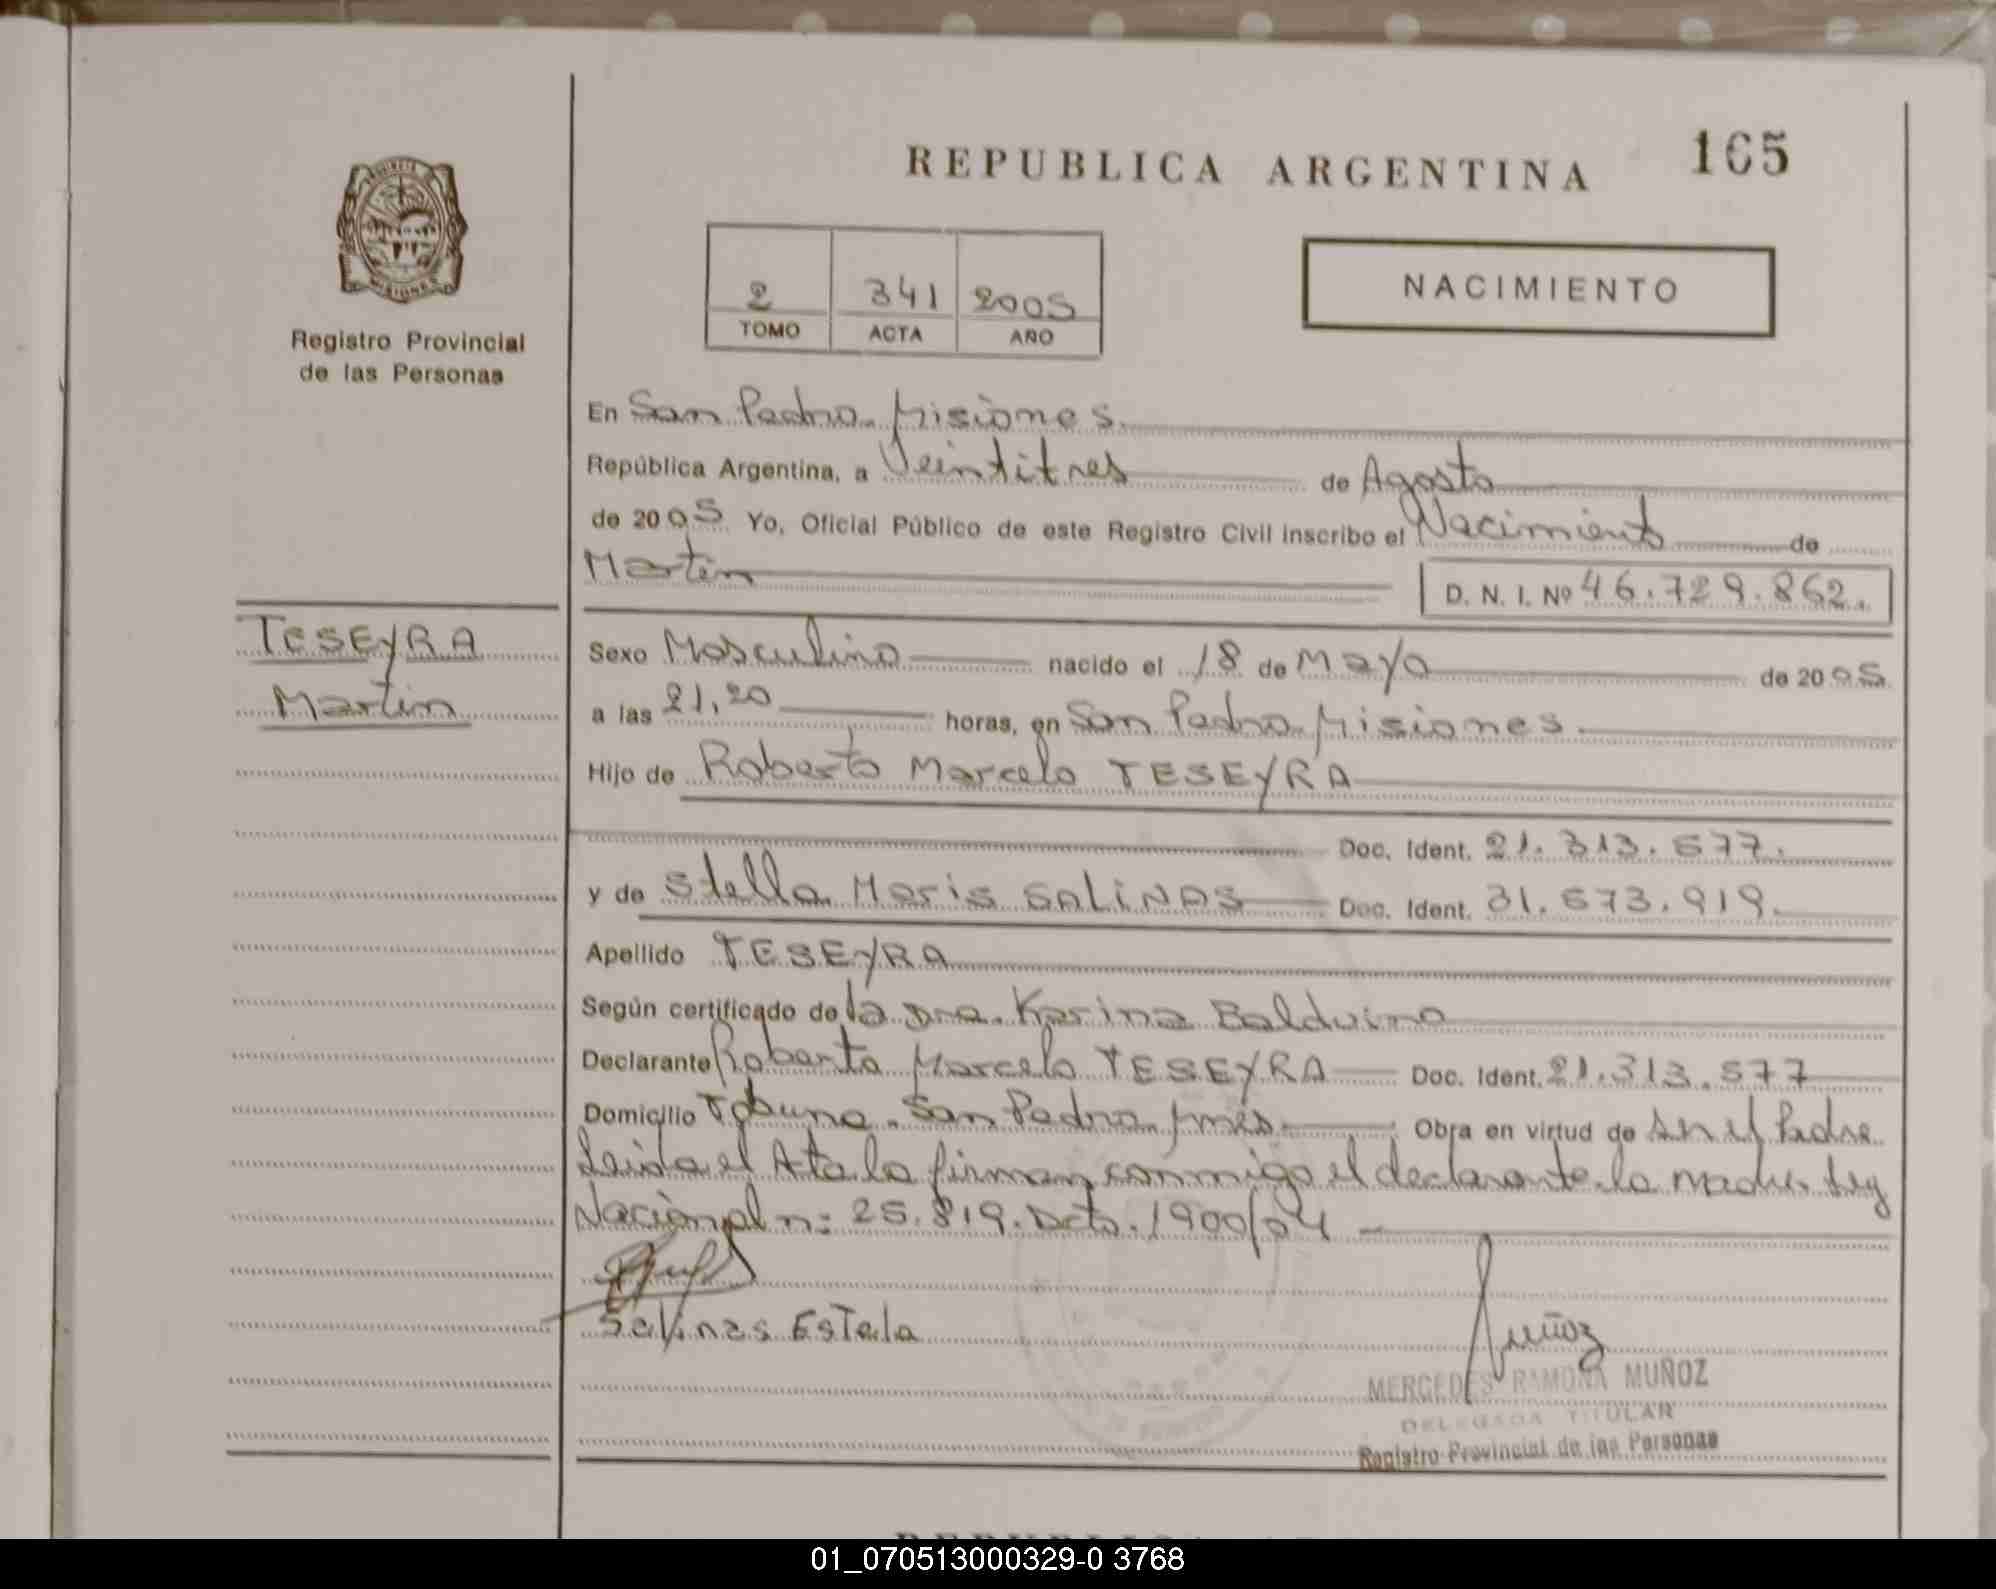 165
REPUBLICA ARGENTINA
MISIONES
Registro Provincial
de las Personas
2 341 2005
TOMO ACTA AÑO
NACIMIENTO
En San Pedro. Misiones.
República Argentina, a Veintitres de Agosto
de 2005 Yo, Oficial Público de este Registro Civil inscribo el Nacimiento de
Martin
D. N. I. Nº 46.729.862.
TESEYRA
Martin
Sexo Masculino nacido el 18 de Mayo de 2005
a las 21,20 horas, en San Pedro. Misiones.
Hijo de Roberto Marcelo TESEYRA
Doc. Ident. 21.313.577.
y de Stella Maris SALINAS Doc. Ident. 31.573.919.
Apellido TESEYRA
Según certificado de la Dra. Karina Balduino
Declarante Roberto Marcelo TESEYRA Doc. Ident. 21.313.577
Domicilio Tobuna. San Pedro. Mnes. Obra en virtud de Padre
Leida el Ata la firman conmigo el declarante. la madre. Ley
Nacional n: 25.819. Dcto. 1900/04
Salinas Estela
Muñoz
MERCEDES RAMONA MUÑOZ
DELEGADA TITULAR
Registro Provincial de las Personas
01_070513000329-0 3768